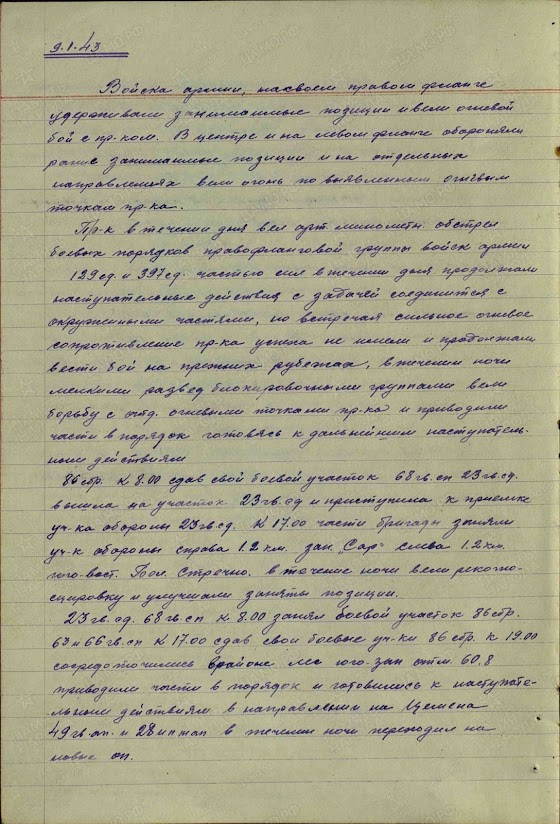 9.1.43
Войска армии, насвоем правом фланге
удерживали занимаемые позиции и вели огневой
бой с пр-ком. В центре и на левом фланге обороняли
ранее занимаемые позиции и на отдельных
направлениях вели огонь по выявленным огневым
точкам пр-ка.
Пр-к в течении дня вел арт. минометн. обстрел
боевых порядков правофланговой группы войск армии
129сд. и 397сд. частью сил в течении дня продолжали
наступательные действия с задачей соединится с
окруженными частями, но встречая сильное огневое
сопротивление пр-ка успеха не имели и продолжали
вести бой на прежних рубежах, в течении ночи
мелкими развед блокировочными группами вели
борьбу с отд. огневыми точками пр-ка и приводили
части в порядок готовясь к дальнейшим наступатель-
ным действиям
86сбр. к 8.00 сдав свой боевой участок 68гв.сп 23гв.сд.
вышла на участок 23гв.сд и приступила к приемке
уч-ка обороны 23гв.сд. К 17.00 части бригады заняли
уч-к обороны справа 1.2 км. зап. "Сар" слева 1.2 км.
юго-вост. Бол. Стречно. в течение ночи вели рекогно-
сцировку и улучшали заняты позиции.
23гв.сд. 68гв.сп к 8.00 занял боевой участок 86сбр.
63 и 66гв.сп к 17.00 сдав свои боевые уч-ки 86сбр. к 19.00
сосредоточились врайоне лес юго-зап отм. 60,8
приводили части в порядок и готовились к наступате-
льным действиям в направлении на Цемена
49гв.ап. и 28иптап в течении ночи переходил на
новые оп.